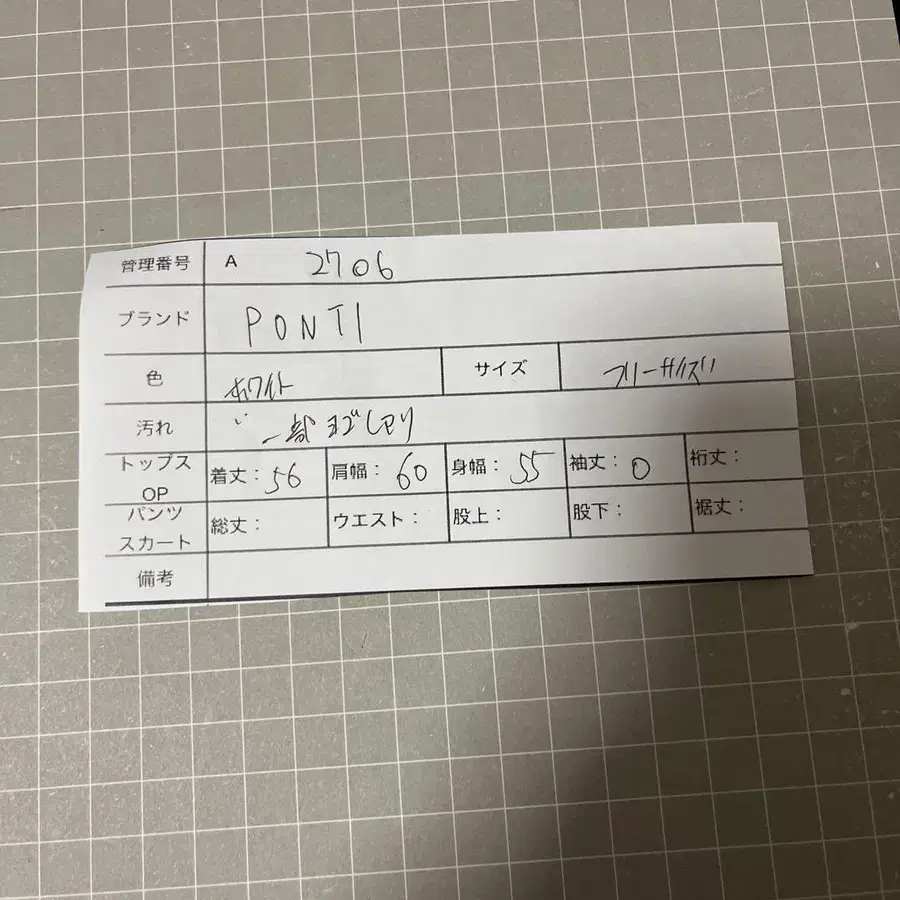 管理番号 A 2706
ブランド PONTI
色 ホワイト サイズ フリーサイズ
汚れ 一部ヨゴレアリ
トップス OP 着丈：56 肩幅：60 身幅：55 袖丈：0 裄丈：
パンツ スカート 総丈： ウエスト： 股上： 股下： 裾丈：
備考